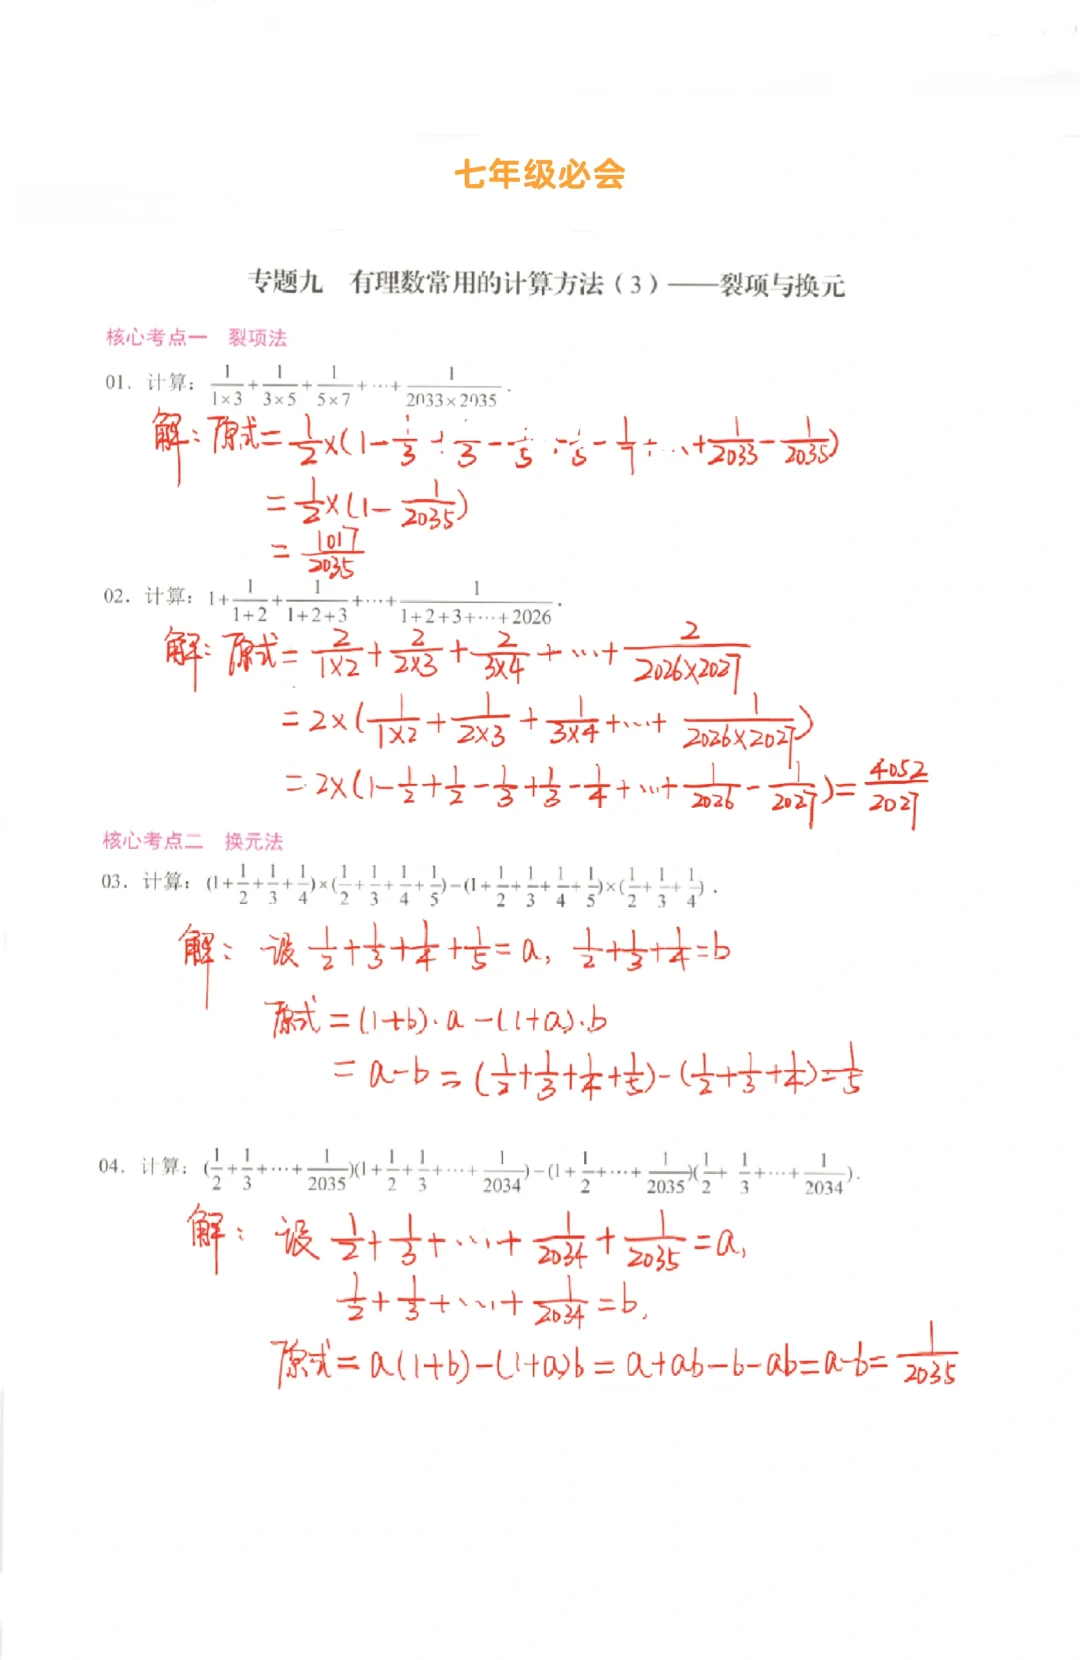 七年级必会
专题九 有理数常用的计算方法(3)——裂项与换元
核心考点一 裂项法
01. 计算: 1/(1×3) + 1/(3×5) + 1/(5×7) + … + 1/(2033×2035) .
解: 原式 = 1/2 × (1 - 1/3 + 1/3 - 1/5 + 1/5 - 1/7 + … + 1/2033 - 1/2035)
= 1/2 × (1 - 1/2035)
= 1017/2035
02. 计算: 1 + 1/(1+2) + 1/(1+2+3) + … + 1/(1+2+3+…+2026) .
解: 原式 = 2/(1×2) + 2/(2×3) + 2/(3×4) + … + 2/(2026×2027)
= 2×(1/(1×2) + 1/(2×3) + 1/(3×4) + … + 1/(2026×2027))
= 2×(1 - 1/2 + 1/2 - 1/3 + 1/3 - 1/4 + … + 1/2026 - 1/2027) = 4052/2027
核心考点二 换元法
03. 计算: (1 + 1/2 + 1/3 + 1/4) × (1/2 + 1/3 + 1/4 + 1/5) - (1 + 1/2 + 1/3 + 1/4 + 1/5) × (1/2 + 1/3 + 1/4) .
解: 设 1/2 + 1/3 + 1/4 + 1/5 = a, 1/2 + 1/3 + 1/4 = b
原式 = (1+b)·a - (1+a)·b
= a-b = (1/2 + 1/3 + 1/4 + 1/5) - (1/2 + 1/3 + 1/4) = 1/5
04. 计算: (1/2 + 1/3 + … + 1/2035)(1 + 1/2 + 1/3 + … + 1/2034) - (1 + 1/2 + … + 1/2035)(1/2 + 1/3 + … + 1/2034) .
解: 设 1/2 + 1/3 + … + 1/2034 + 1/2035 = a,
1/2 + 1/3 + … + 1/2034 = b,
原式 = a(1+b) - (1+a)b = a+ab-b-ab = a-b = 1/2035